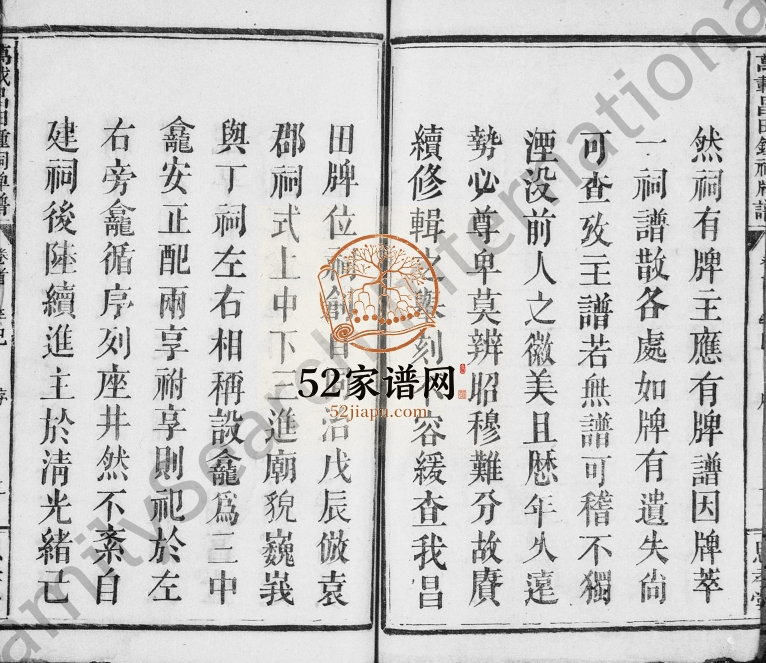 然祠有牌主應有牌譜因牌萃
一祠譜散各處如牌有遺失尚
可查攷主譜若無譜可稽不獨
湮没前人之徽美且歷年久遠
勢必尊卑莫辨昭穆難分故賡
續修輯刻容緩查我昌
田牌位戊辰倣袁
郡祠式上中下三進廟貌巍峩
與丁祠左右相稱設龕爲三中
龕安正配兩享祔享則祀於左
右旁龕循序列座井然不紊自
建祠後陸續進主於清光緒己
52家谱网
52jiapu.com
FamilySearch International